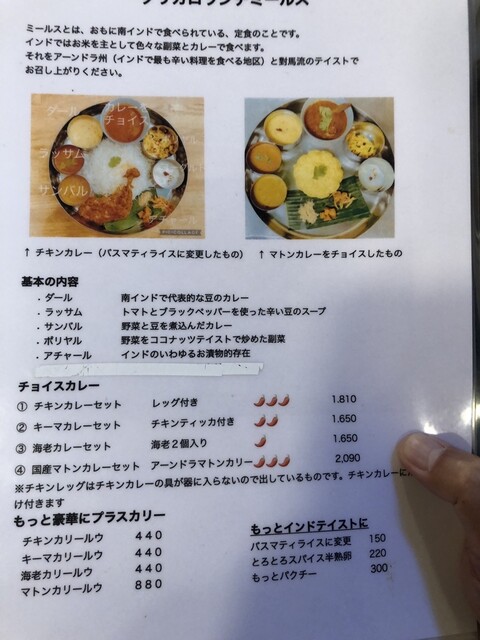 ミールスとは、おもに南インドで食べられている、定食のことです。
インドではお米を主として色々な副菜とカレーで食べます。
それをアーンドラ州（インドで最も辛い料理を食べる地区）と對馬流のテイストで
お召し上がりください。
ダール
カレーを
チョイス
ラッサム
サンバル
アチャール
↑ チキンカレー（バスマティライスに変更したもの）
↑ マトンカレーをチョイスしたもの
基本の内容
・ダール 南インドで代表的な豆のカレー
・ラッサム トマトとブラックペッパーを使った辛い豆のスープ
・サンバル 野菜と豆を煮込んだカレー
・ポリヤル 野菜をココナッツテイストで炒めた副菜
・アチャール インドのいわゆるお漬物的存在
チョイスカレー
① チキンカレーセット レッグ付き 1.810
② キーマカレーセット チキンティッカ付き 1.650
③ 海老カレーセット 海老２個入り 1.650
④ 国産マトンカレーセット アーンドラマトンカリー 2,090
※チキンレッグはチキンカレーの具が器に入らないので出しているものです。チキンカレーに
け付きます
もっと豪華にプラスカリー
チキンカリールウ ４４０
キーマカリールウ ４４０
海老カリールウ ４４０
マトンカリールウ ８８０
もっとインドテイストに
バスマティライスに変更 150
とろとろスパイス半熟卵 220
もっとパクチー 300